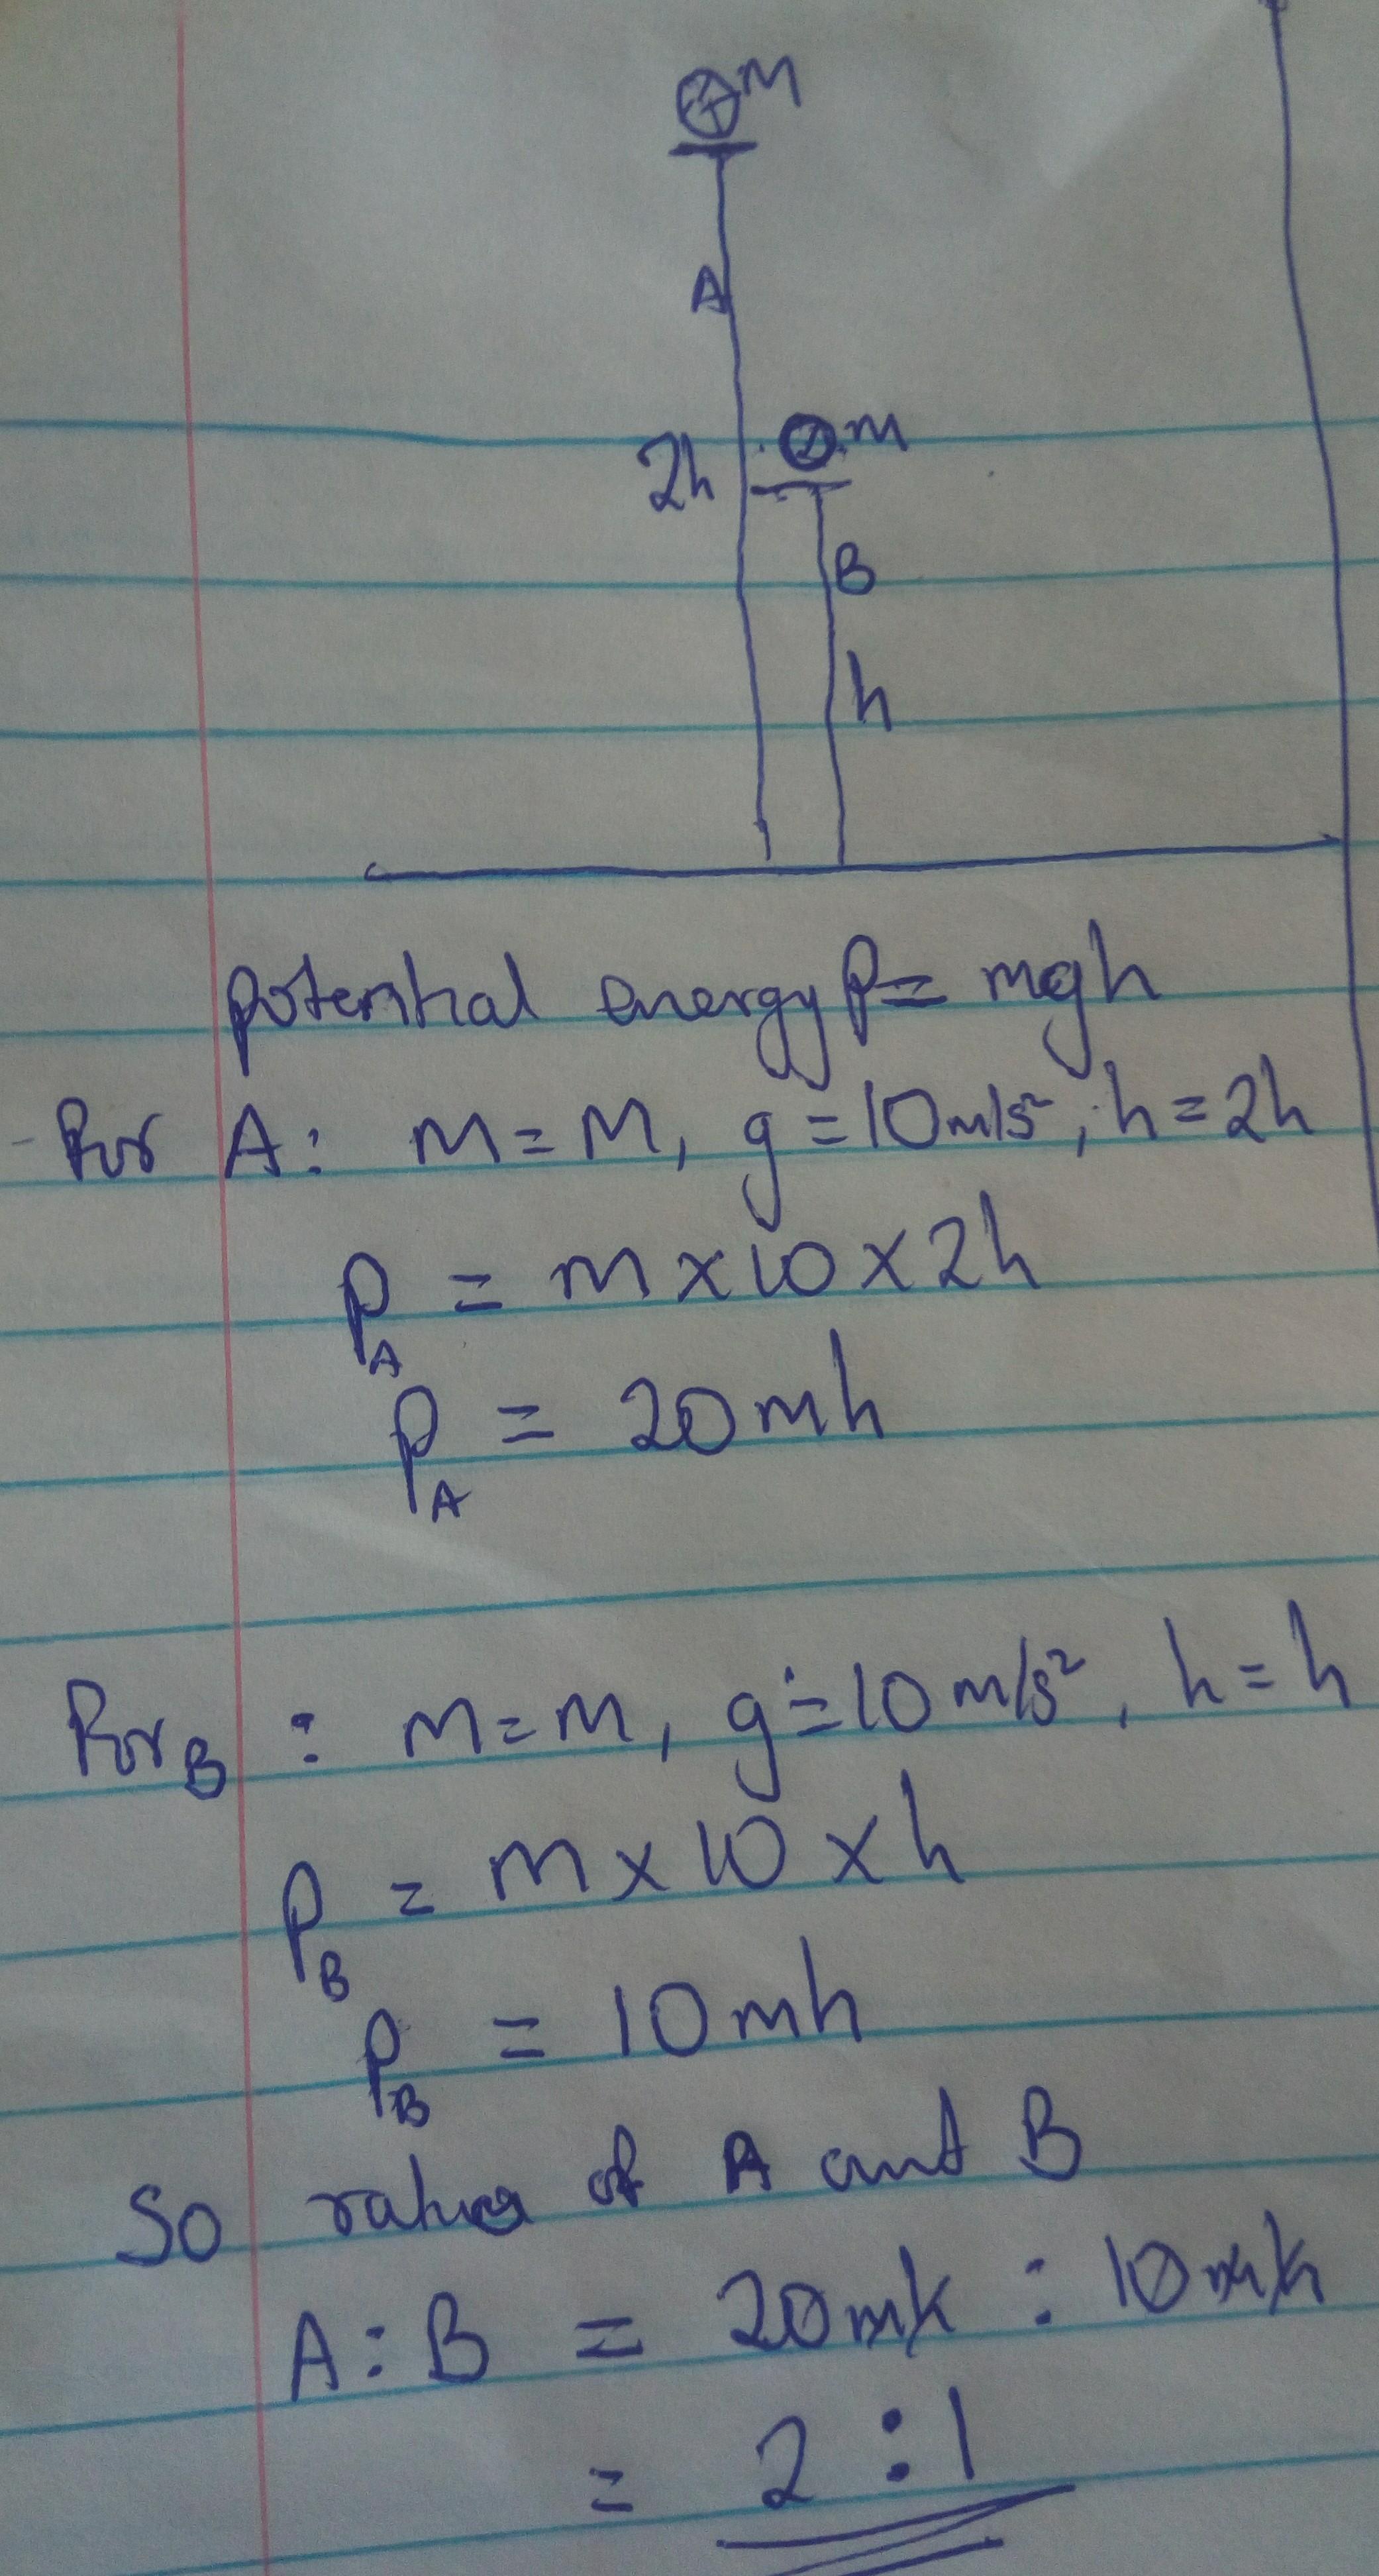 M
A
2h
m
B
h
potential energy P = mgh
For A: m = M, g = 10m/s², h = 2h
P_A = m × 10 × 2h
P_A = 20mh
For B : m = m, g = 10 m/s², h = h
P_B = m × 10 × h
P_B = 10mh
So of A and B
A : B = 20mh : 10mh
= 2 : 1